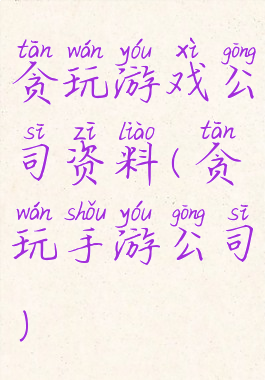 tān wán yóu xì gōng
贪玩游戏公
sī zī liào tān
司资料(贪
wán shǒu yóu gōng sī
玩手游公司
)